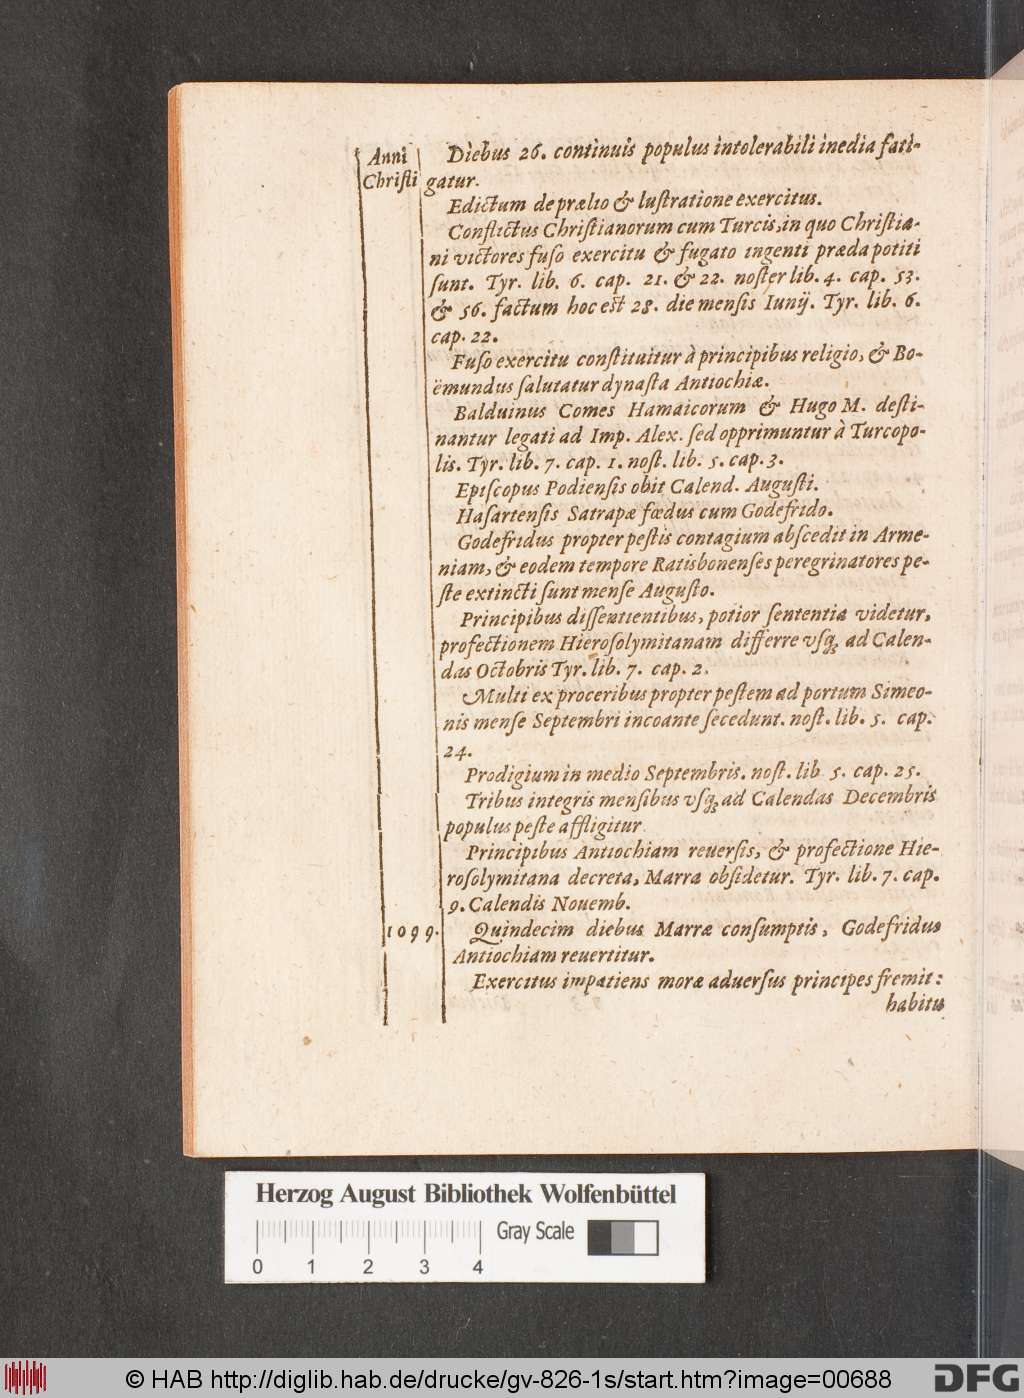 Anni Diebus 26. continuis populus intolerabili inedia fati-
Christi gatur.
Edictum de prælio & lustratione exercitus.
Conflictus Christianorum cum Turcis, in quo Christia-
ni victores fuso exercitu & fugato ingenti præda potiti
sunt. Tyr. lib. 6. cap. 21. & 22. noster lib. 4. cap. 53.
& 56. factum hoc est 28. die mensis Iunij. Tyr. lib. 6.
cap. 22.
Fuso exercitu constituitur à principibus religio, & Bo-
ëmundus salutatur dynasta Antiochiæ.
Balduinus Comes Hamaicorum & Hugo M. desti-
nantur legati ad Imp. Alex. sed opprimuntur à Turcopo-
lis. Tyr. lib. 7. cap. 1. nost. lib. 5. cap. 3.
Episcopus Podiensis obit Calend. Augusti.
Hasartensis Satrapæ fœdus cum Godefrido.
Godefridus propter pestis contagium abscedit in Arme-
niam, & eodem tempore Ratisbonenses peregrinatores pe-
ste extincti sunt mense Augusto.
Principibus dissentientibus, potior sententia videtur,
profectionem Hierosolymitanam differre vsq; ad Calen-
das Octobris Tyr. lib. 7. cap. 2.
Multi ex proceribus propter pestem ad portum Simeo-
nis mense Septembri incoante secedunt. nost. lib. 5. cap.
24.
Prodigium in medio Septembris. nost. lib 5. cap. 25.
Tribus integris mensibus vsq; ad Calendas Decembris
populus peste affligitur
Principibus Antiochiam reuersis, & profectione Hie-
rosolymitana decreta, Marra obsidetur. Tyr. lib. 7. cap.
9. Calendis Nouemb.
1099. Quindecim diebus Marræ consumptis, Godefridus
Antiochiam reuertitur.
Exercitus impatiens moræ aduersus principes fremit:
habitu
Herzog August Bibliothek Wolfenbüttel
Gray Scale
0 1 2 3 4
© HAB http://diglib.hab.de/drucke/gv-826-1s/start.htm?image=00688
DFG